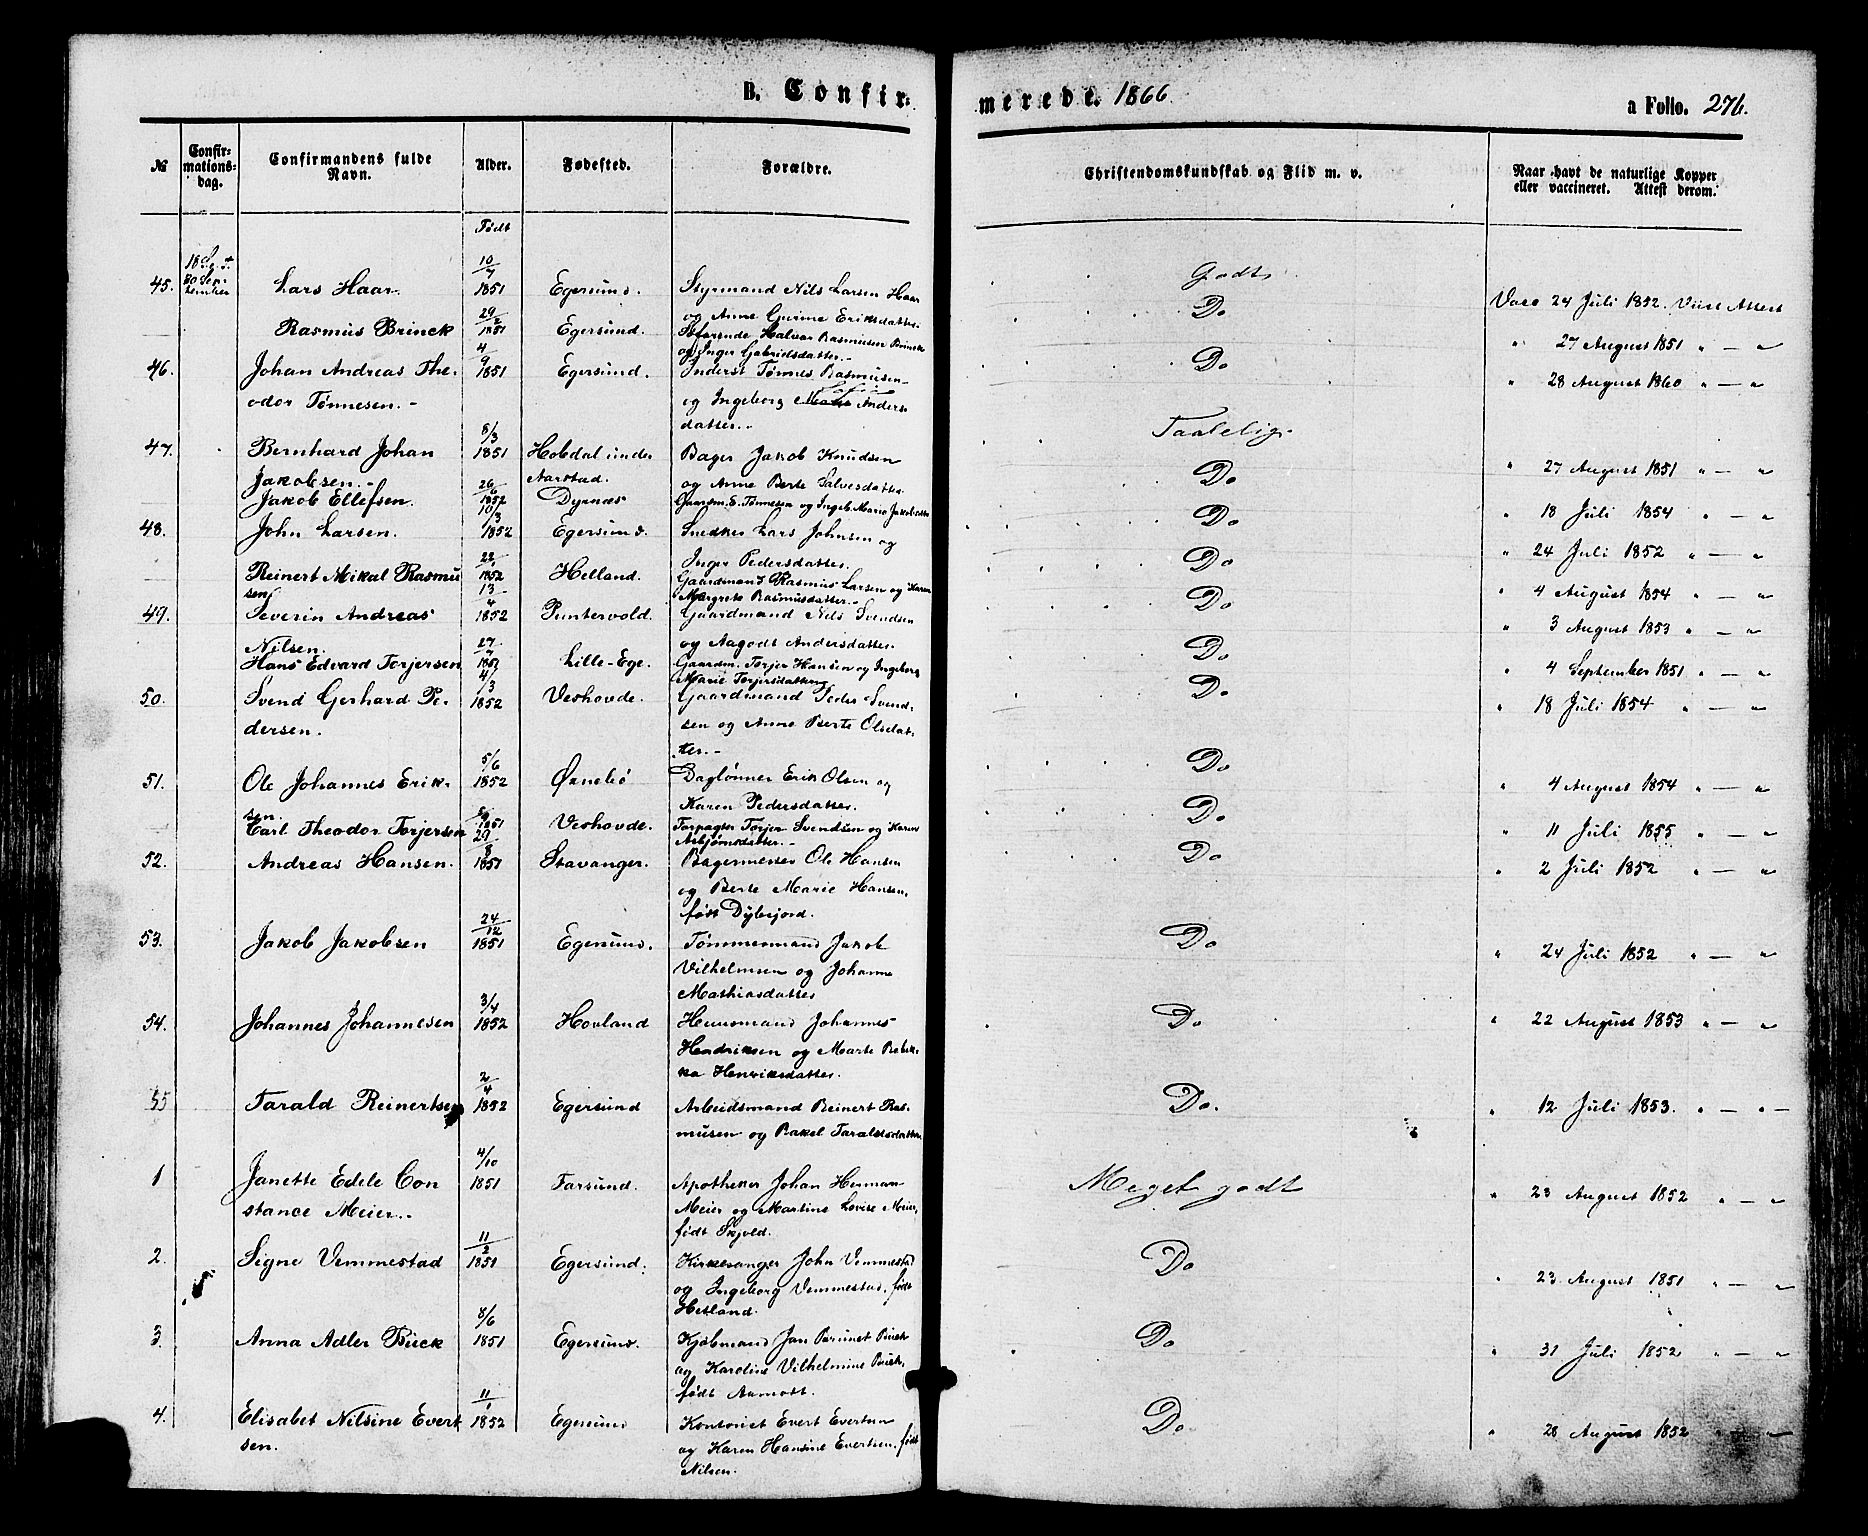 B. Confir-
merede. 1866
a Folio. 276.
№ Confir-mations-dag. Confirmandens fulde Navn. Alder. Fødested. Forældre. Christendomskundskab og Flid m. v. Naar havt de naturlige Kopper eller vaccineret. Attest derom.
Født
45. Lars Haar. 10/7 1851 Egersund. Styrmand Nils Larsen Haar Godt Vacc 24 Juli 1852. Viist Attest
og Anne Gurine Eriksdatter.
Rasmus Brinck 29/2 1851 Egersund. Halvor Rasmusen Brinck Do " 27 August 1851 " — "
og Inger Gabrielsdatter.-
46. Johan Andreas The- 4/9 1851 Egersund. Inderst Tønnes Rasmusen Do " 28 August 1860 " — "
odor Tønnesen.- og Ingeborg Anders
datter.-
47. Bernhard Johan 8/3 1851 Hobdal under Bager Jakob Knudsen Taalelig. " 27 August 1851 " — "
Jakobsen.- Aarstad. og Anne Berte Salvesdatter.
Jakob Ellefsen. 26/6 1852 Dyrnæs Gaardm. E. Tønnesen og Ingeb. Maria Jakobsdatter Do " 18 Juli 1854 " — "
48. John Larsen. 10/3 1852 Egersund. Snedker Lars Johnsen og Do " 24 Juli 1852 " — "
Inger Pedersdatter.
Reinert Mikal Rasmu 1852 Helland. Gaardmand Rasmus Larsen og Karen Do " 4 August 1854 " — "
sen Margrete Rasmusdatter.-
49. Severin Andreas 13/4 1852 Puntervold. Gaardmand Nils Svendsen Do " 3 August 1853 " — "
Nilsen. og Aagodt Andersdatter.
Hans Edvard Torjersen 1851 Lille-Ege. Gaardm. Torjer Hansen og Ingeborg Do " 4 September 1851 " — "
Marie Torjersdatter
50. Svend Gerhard Pe- 4/3 1852 Veshovde. Gaardmand Peder Svend- Do " 18 Juli 1854 " — "
dersen. sen og Anne Berte Olsdat-
ter.-
51. Ole Johannes Erik- 5/6 1852 Øxnebø Daglønner Erik Olsen og Do " 4 August 1854 " — "
sen. Karen Pedersdatter.
Carl Theodor Torjersen 1851 Veshovde. Torjer Svendsen og Karen Do " 11 Juli 1855 " — "
Asbjørnsdatter.-
52. Andreas Hansen. 29/8 1851 Stavanger. Bagermester Ole Hansen Do " 2 Juli 1852 " — "
og Berte Marie Hansen,
født Dybesjord.
53. Jakob Jakobsen 24/12 1851 Egersund. Tømmermand Jakob Do " 24 Juli 1852 " — "
Vilhelmsen og Johanne
Mathiasdatter
54. Johannes Johannesen 3/4 1852 Hovland Huusmand Johannes Do " 22 August 1853 " — "
Hendriksen og Marte Rebek-
ka Henriksdatter.
55 Tarald Reinertsen 2/4 1852 Egersund Arbeidsmand Reinert Ras- Do. " 12 Juli 1853. " — " —
musen og Rakel Taraldsdatter.
1 Janette Edele Con 4/10 1851 Farsund. Apotheker Johan Herman Meget godt " 23 August 1852 " — "
stance Meier.- Meier og Martine Lovise Meier,
født Skjold.
2. Signe Vemmestad 11/2 1851 Egersund. Kirkesanger John Vemmestad Do " 23 August 1851 " — "
og Ingeborg Vemmestad, født
Hetland.
3. Anna Adler Büek 8/6 1851 Egersund. Kjøbmand Jan Do " 31 Juli 1852 " — "
og Karoline Vilhelmine
født Aamodt.
4. Elisabet Nilsine Evert 11/1 1852 Egersund Kontorist Evert Evertsen Do " 28 August 1852 " — "
sen. og Karen Hansine Evertsen, født
Nilsen.